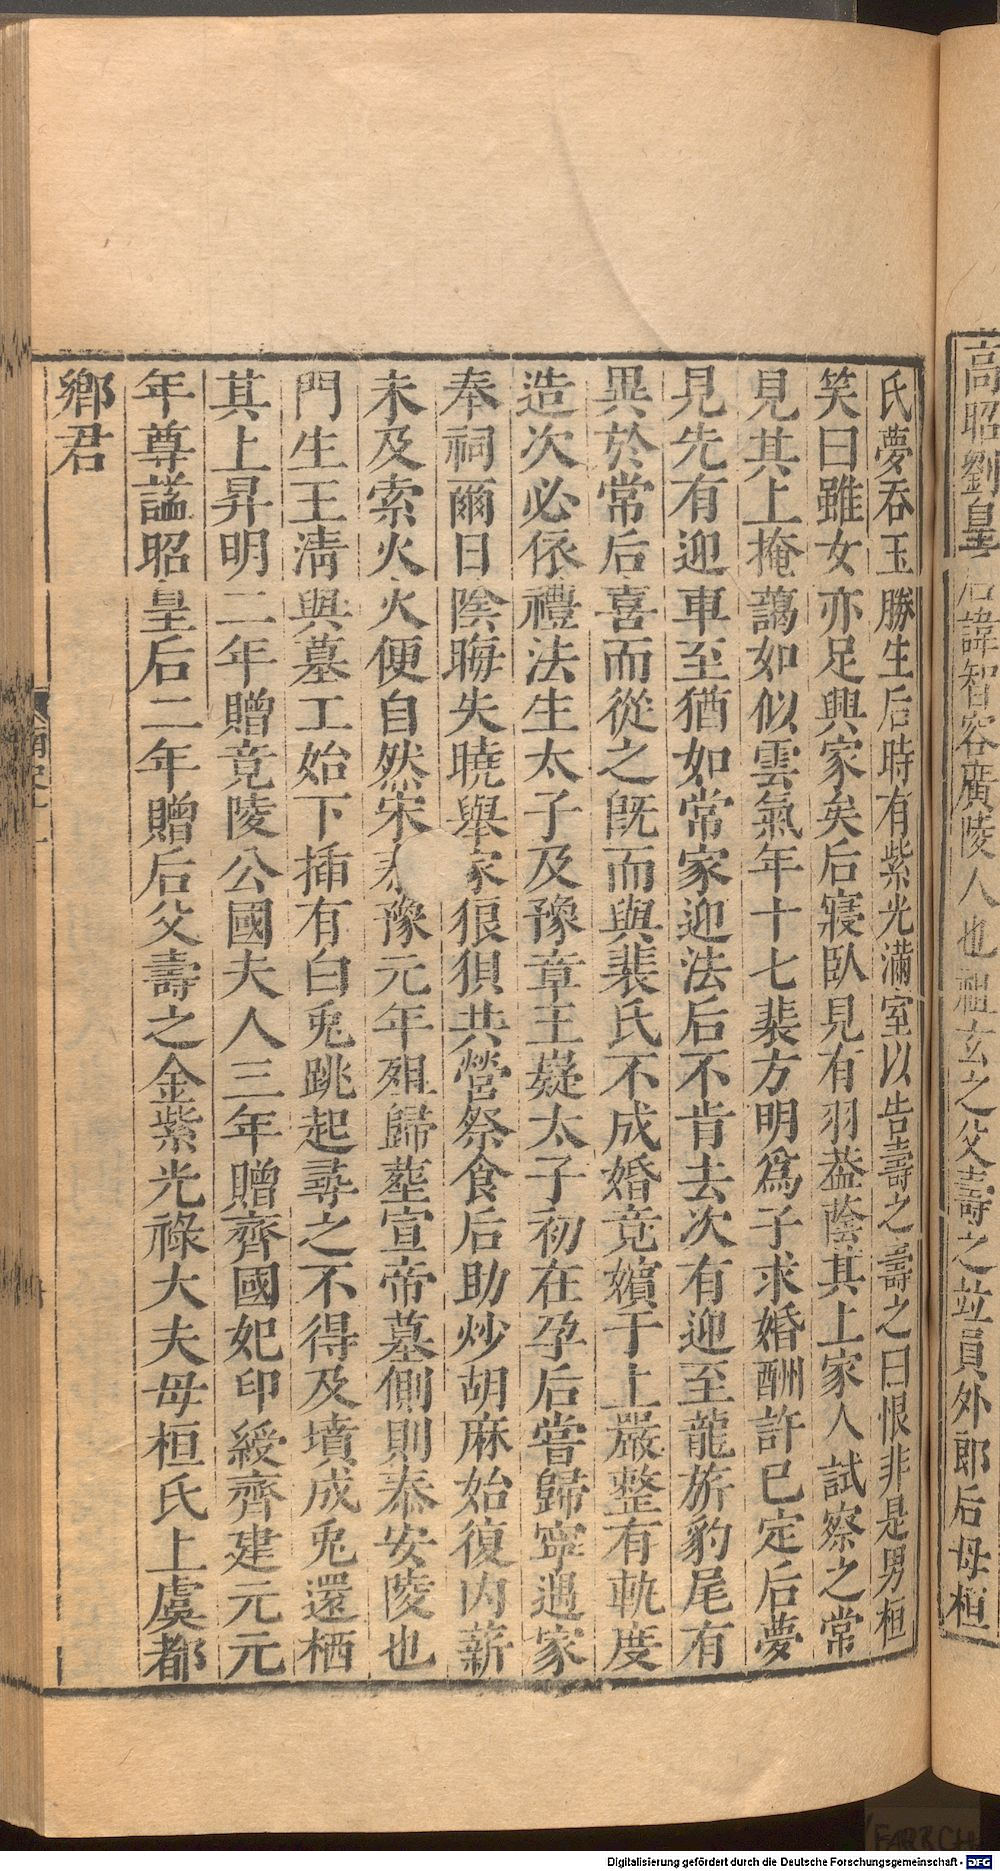 高昭劉皇后諱智容廣陵人也祖玄之父壽之竝員外郎后母桓
氏夢吞玉勝生后時有紫光滿室以告壽之壽之曰恨非是男桓
笑曰雖女亦足興家矣后寢臥見有羽葢蔭其上家人試察之常
見其上掩藹如似雲氣年十七裴方明爲子求婚酬許已定后夢
見先有迎車至猶如常家迎法后不肯去次有迎至龍旂豹尾有
異於常后喜而從之旣而與裴氏不成婚竟嬪于上嚴整有軌度
造次必依禮法生太子及豫章王嶷太子初在孕后嘗歸寧遇家
奉祠爾日陰晦失曉舉家狼狽共營祭食后助炒胡麻始復内薪
未及索火火便自然宋泰豫元年殂歸葬宣帝墓側則泰安陵也
門生王淸與墓工始下揷有白兎跳起尋之不得及墳成兎還栖
其上昇明二年贈竟陵公國夫人三年贈齊國妃印綬齊建元元
年尊謚昭皇后二年贈后父壽之金紫光祿大夫母桓氏上虞都
鄉君
Digitalisierung gefördert durch die Deutsche Forschungsgemeinschaft - DFG